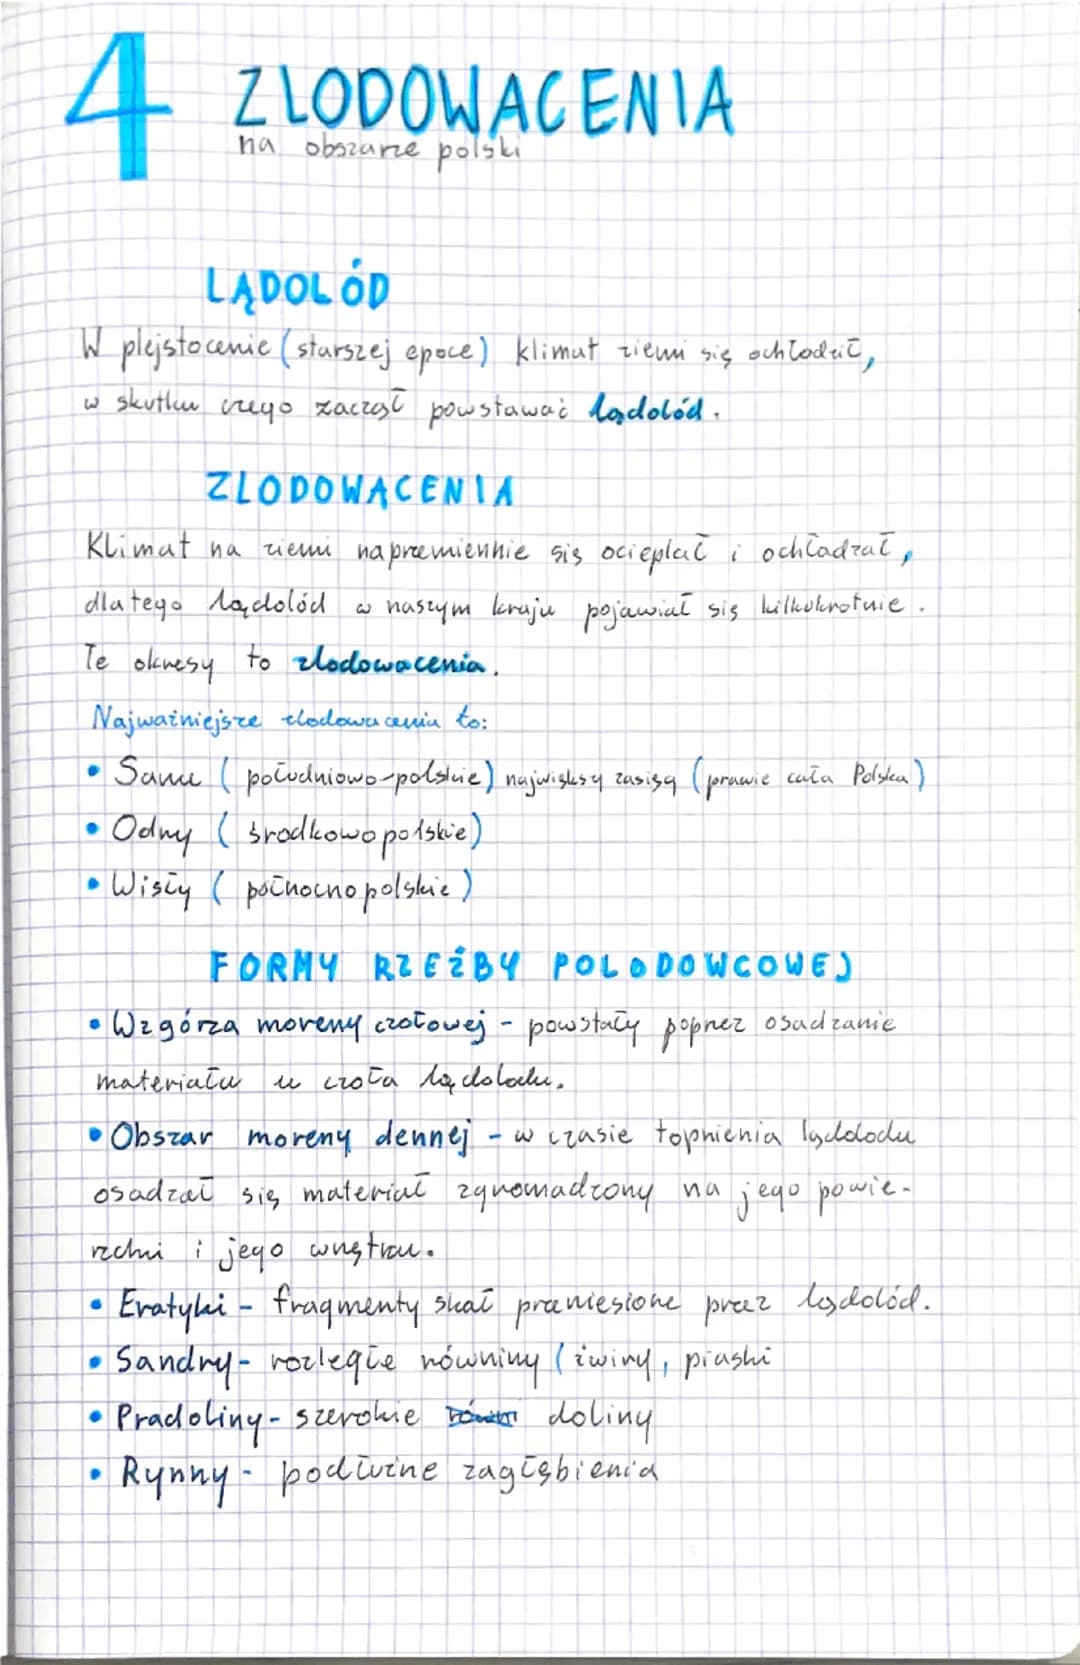 4 ZLODOWACENIA
na obszarze polski
LĄDOLÓD
W plejstocenie (starszej epoce) klimat ziemi się ochłodził,
w skutku czego zaczął powstawać lądolód.
ZLODOWACENIA
Klimat na ziemi naprzemiennie się ocieplał i ochładzał,
dlatego lądolód w naszym kraju pojawiał się kilkukrotnie.
Te okresy to zlodowacenia.
Najważniejsze zlodowacenia to:
• Sanu (południowo-polskie) największy zasięg (prawie cała Polska)
• Odry (środkowopolskie)
• Wisły (północnopolskie)
FORMY RZEŹBY POLODOWCOWEJ
• Wzgórza moreny czołowej - powstały poprzez osadzanie
materiału u czoła lądolodu.
• Obszar moreny dennej - w czasie topnienia lądolodu
osadzał się materiał zgromadzony na jego powie-
rzchni i jego wnętrzu.
• Eratyki - fragmenty skał przeniesione przez lądolód.
• Sandry - rozległe równiny (żwiry, piaski
• Pradoliny - szerokie doliny
• Rynny - podłużne zagłębienia